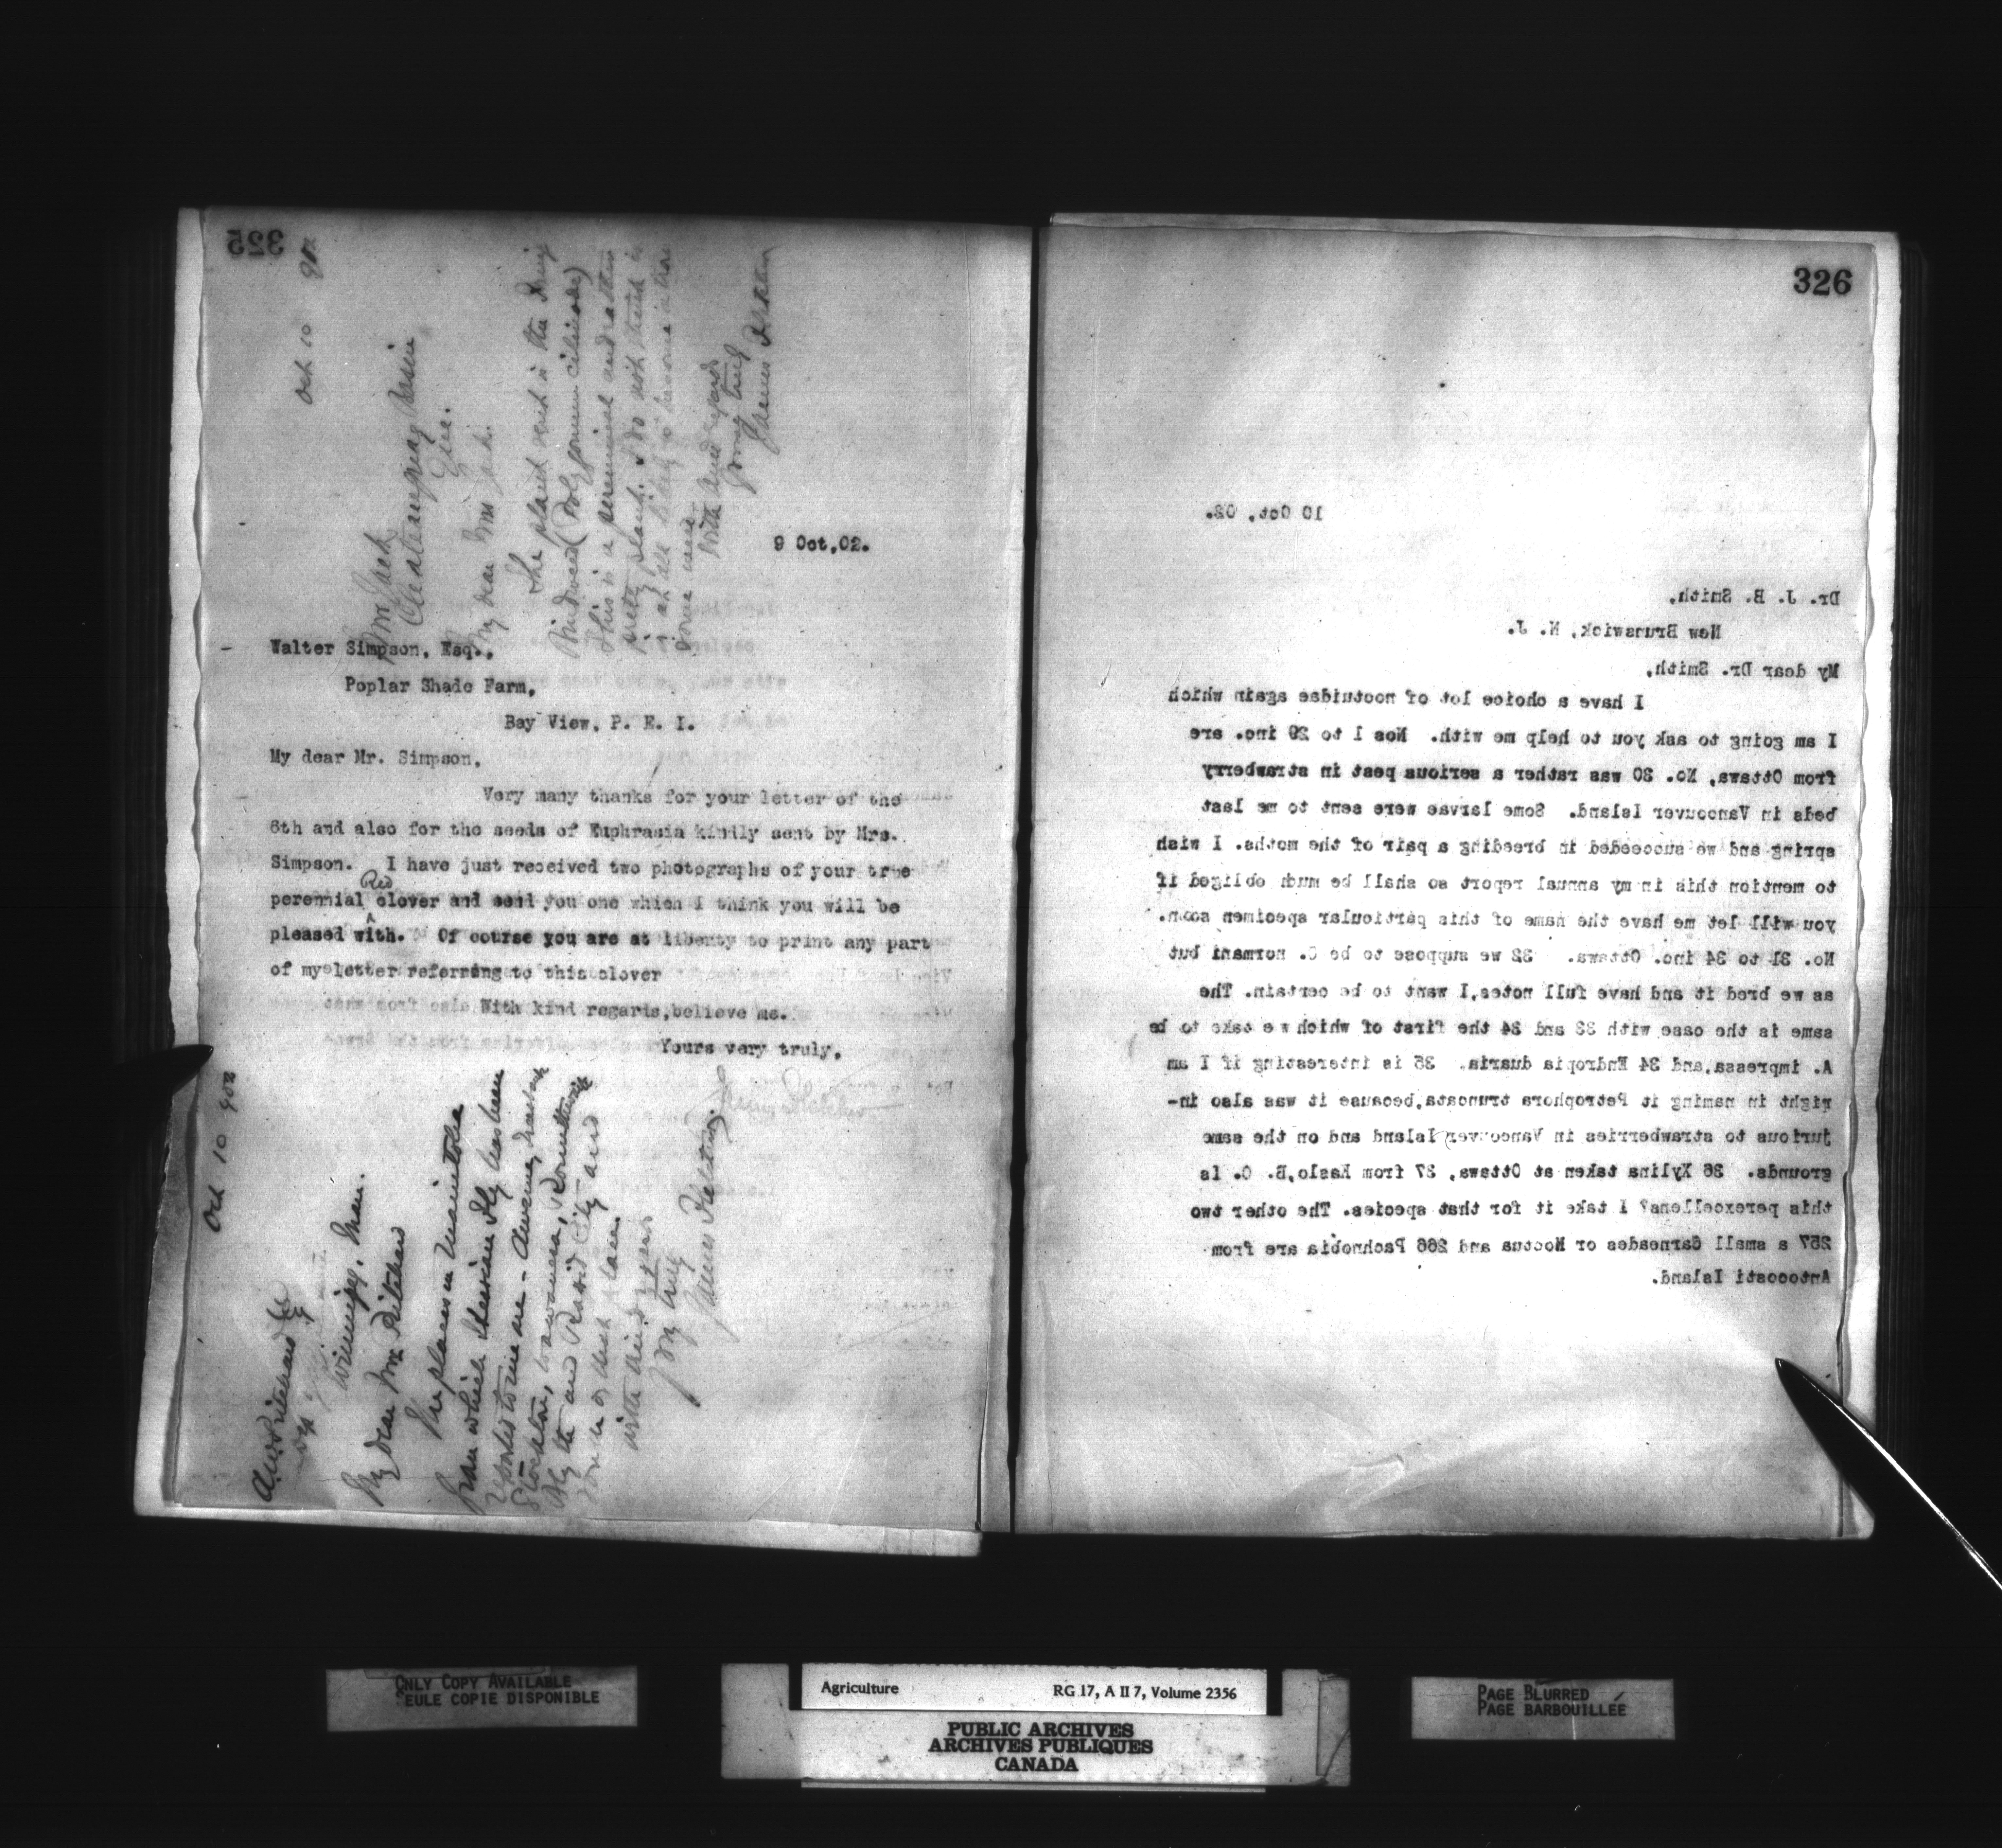 325
Oct 10 902
Mrs Jack
Chateauguay Basin
Que.
My dear Mrs Jack.
The plant sent is the Fringed
Bindweed (Polygonum cilinode)
This is a perennial and rather
pretty plant. I do not think it
is at all likely to become a trou
some weed.
With kind regards
Yours truly
James Fletcher
9 Oct,02.
Walter Simpson, Esq.,
Poplar Shade Farm,
Bay View, P. E. I.
My dear Mr. Simpson,
Very many thanks for your letter of the
6th and also for the seeds of Euphrasia kindly sent by Mrs.
Simpson. I have just received two photographs of your true
perennial Red clover and send you one which I think you will be
pleased with. Of course you are at liberty to print any part
of my letter referring to this clover
With kind regards,believe me.
Yours very truly,
James Fletcher
Oct 10 902
A.W. Pritchard
Winnipeg, Man.
My dear Mr Pritchard
The places in Manitoba
from which Hessian Fly has been
reported to me are - Aweme,
Stockton,
and Rapid City and
with kind regards
Yrs truly
James Fletcher
326
10 Oct, 02.
Dr. J. B. Smith,
New Brunswick, N. J.
My dear Dr. Smith,
I have a choice lot of noctuidae again which
I am going to ask you to help me with. Nos 1 to 29 inc. are
from Ottawa, No. 30 was rather a serious pest in strawberry
beds in Vancouver Island. Some larvae were sent to me last
spring and we succeeded in breeding a pair of the moths. I wish
to mention this in my annual report so shall be much obliged if
you will let me have the name of this particular specimen soon.
No. 31 to 34 inc. Ottawa. 32 we suppose to be C. normani but
as we bred it and have full notes,I want to be certain. The
same is the case with 33 and 34 the first of which we take to be
A. impressa,and 34 Endropia duaria. 35 is interesting if I am
right in naming it Petrophora truncata,because it was also in-
jurious to strawberries in Vancouver Island and on the same
grounds. 36 Xylina taken at Ottawa, 37 from Kaslo,B. C. Is
this perexcellens? I take it for that species. The other two
257 a small Carneades or Noctua and 266 Pachnobia are from
Antocosti Island.
ONLY COPY AVAILABLE
SEULE COPIE DISPONIBLE
Agriculture RG 17, A II 7, Volume 2356
PUBLIC ARCHIVES
ARCHIVES PUBLIQUES
CANADA
PAGE BLURRED
PAGE BARBOUILLÉE